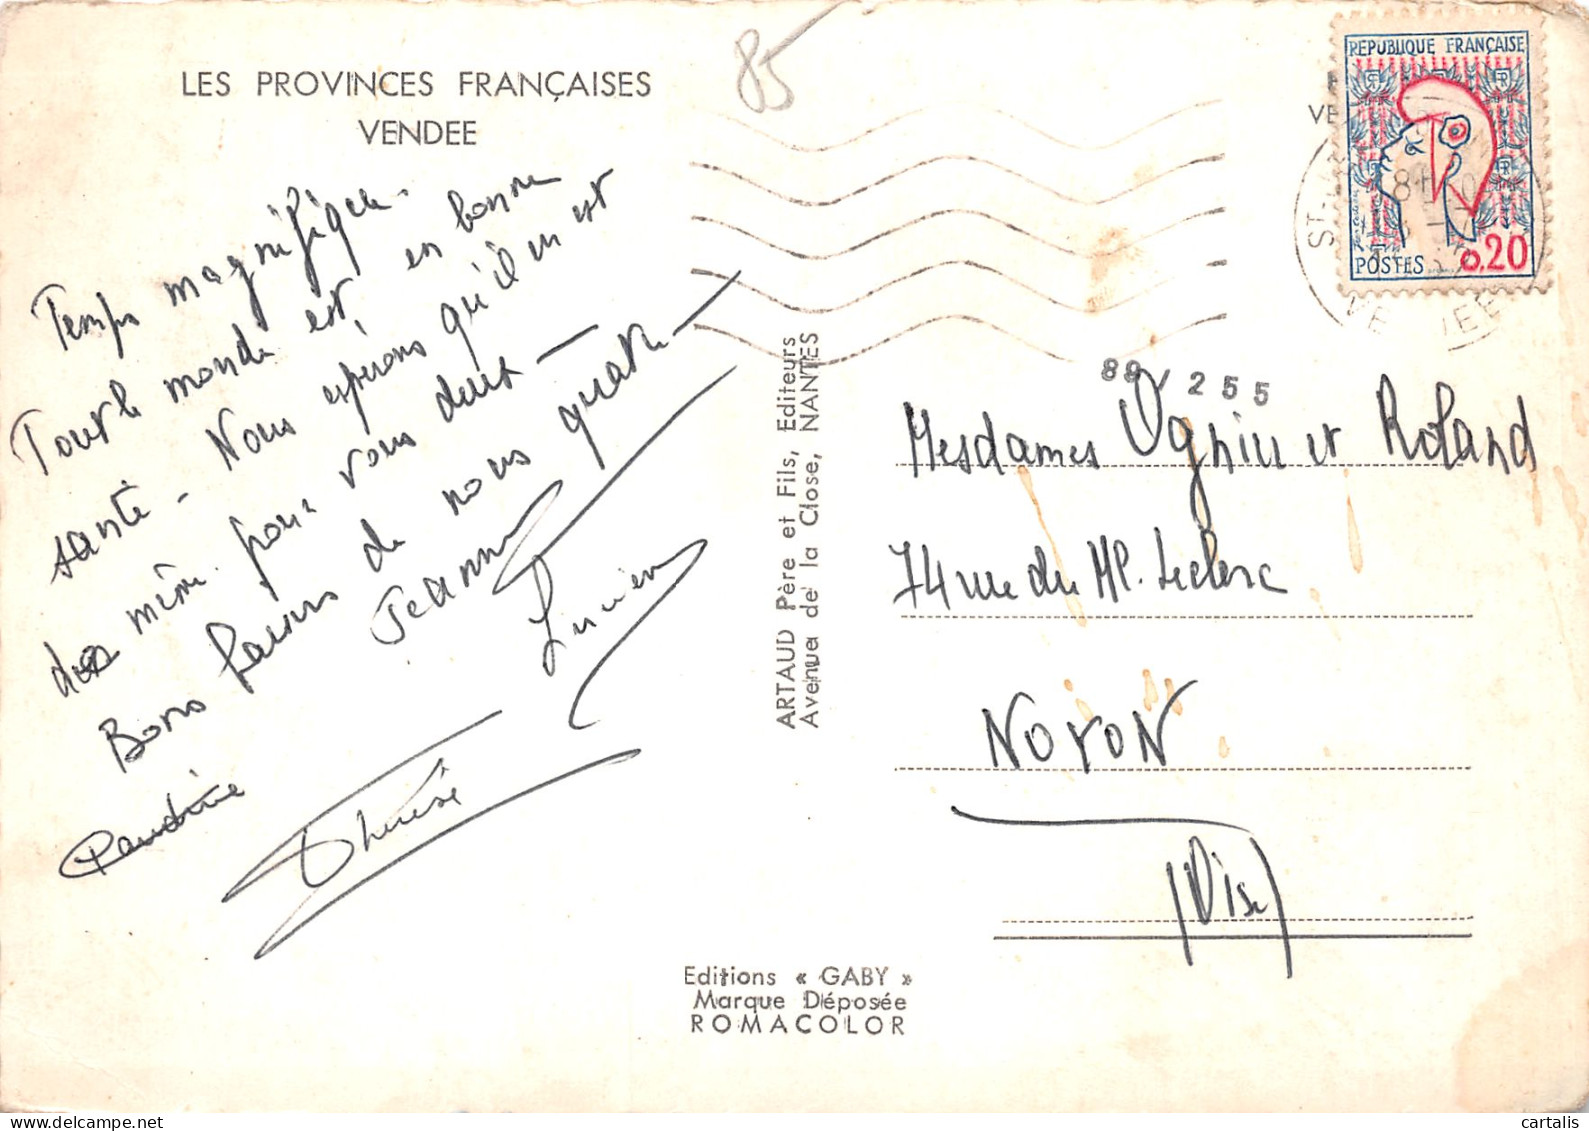 LES PROVINCES FRANÇAISES
VENDEE
85
Temps magnifique.
Tout le monde est en bonne
santé - Nous espérons qu'il en est
de même pour vous deux -
Bons baisers de nous quatre -
Jeanne
Lucien
Thérèse
ARTAUD Père et Fils, Editeurs
Avenue de la Close, NANTES
Editions « GABY »
Marque Déposée
ROMACOLOR
REPUBLIQUE FRANÇAISE
POSTES 0,20
89 / 255
Mesdames et Roland
74 rue du Ml. Leclerc
NOYON
(Oise)
delcampe.net
cartalis